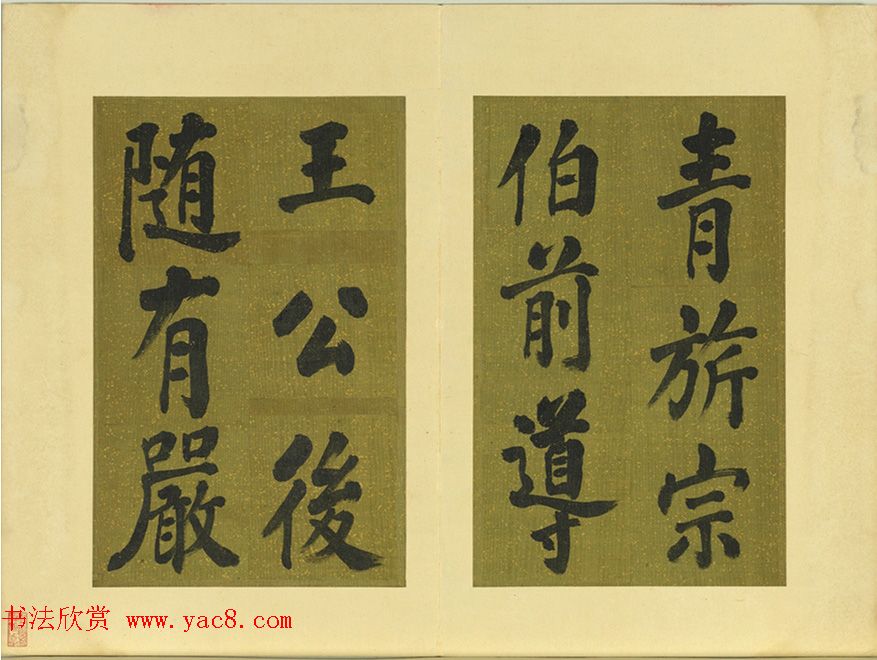 青旂宗
伯前導
王公後
随有嚴
书法欣赏 www.yac8.com